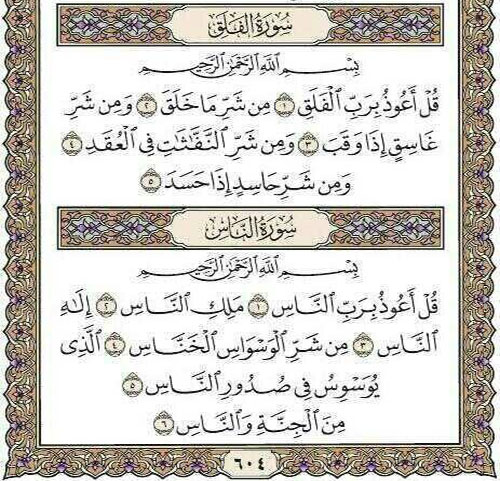 سُورَةُ الفَلَقِ
بِسْمِ اللَّهِ الرَّحْمَٰنِ الرَّحِيمِ
قُلْ أَعُوذُ بِرَبِّ الْفَلَقِ ١ مِن شَرِّ مَا خَلَقَ ٢ وَمِن شَرِّ
غَاسِقٍ إِذَا وَقَبَ ٣ وَمِن شَرِّ النَّفَّاثَاتِ فِي الْعُقَدِ ٤
وَمِن شَرِّ حَاسِدٍ إِذَا حَسَدَ ٥
سُورَةُ النَّاسِ
بِسْمِ اللَّهِ الرَّحْمَٰنِ الرَّحِيمِ
قُلْ أَعُوذُ بِرَبِّ النَّاسِ ١ مَلِكِ النَّاسِ ٢ إِلَٰهِ
النَّاسِ ٣ مِن شَرِّ الْوَسْوَاسِ الْخَنَّاسِ ٤ الَّذِي
يُوَسْوِسُ فِي صُدُورِ النَّاسِ ٥
مِنَ الْجِنَّةِ وَالنَّاسِ ٦
٦٠٤